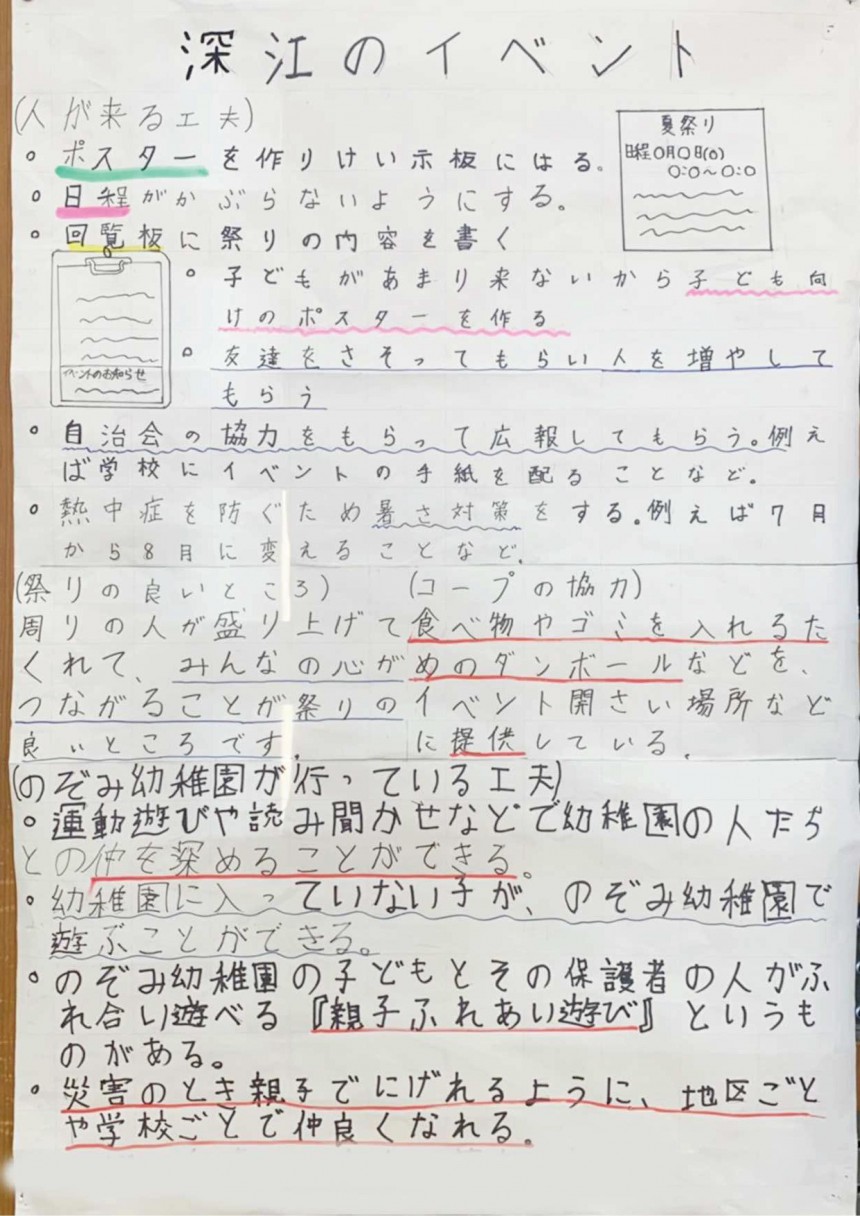 深江のイベント
(人が来る工夫)
。ポスターを作りけい示板にはる。
夏祭り
日程〇月〇日(〇)
〇:〇〜〇:〇
。日程がかぶらないようにする。
。回覧板に祭りの内容を書く
。子どもがあまり来ないから子ども向
けのポスターを作る
イベントのお知らせ
。友達をさそってもらい人を増やして
もらう
。自治会の協力をもらって広報してもらう。例え
ば学校にイベントの手紙を配ることなど。
。熱中症を防ぐため暑さ対策をする。例えば7月
から8月に変えることなど、
(祭りの良いところ)
周りの人が盛り上げて
くれて、みんなの心が
つながることが祭りの
良いところです、
(コープの協力)
食べ物やゴミを入れるた
めのダンボールなどを、
イベント開さい場所など
に提供している、
(のぞみ幼稚園が行っている工夫)
。運動遊びや読み聞かせなどで幼稚園の人たち
との仲を深めることができる。
。幼稚園に入っていない子が、のぞみ幼稚園で
遊ぶことができる。
。のぞみ幼稚園の子どもとその保護者の人がふ
れ合い遊べる『親子ふれあい遊び』というも
のがある。
。災害のとき親子でにげれるように、地区ごと
や学校ごとで仲良くなれる。